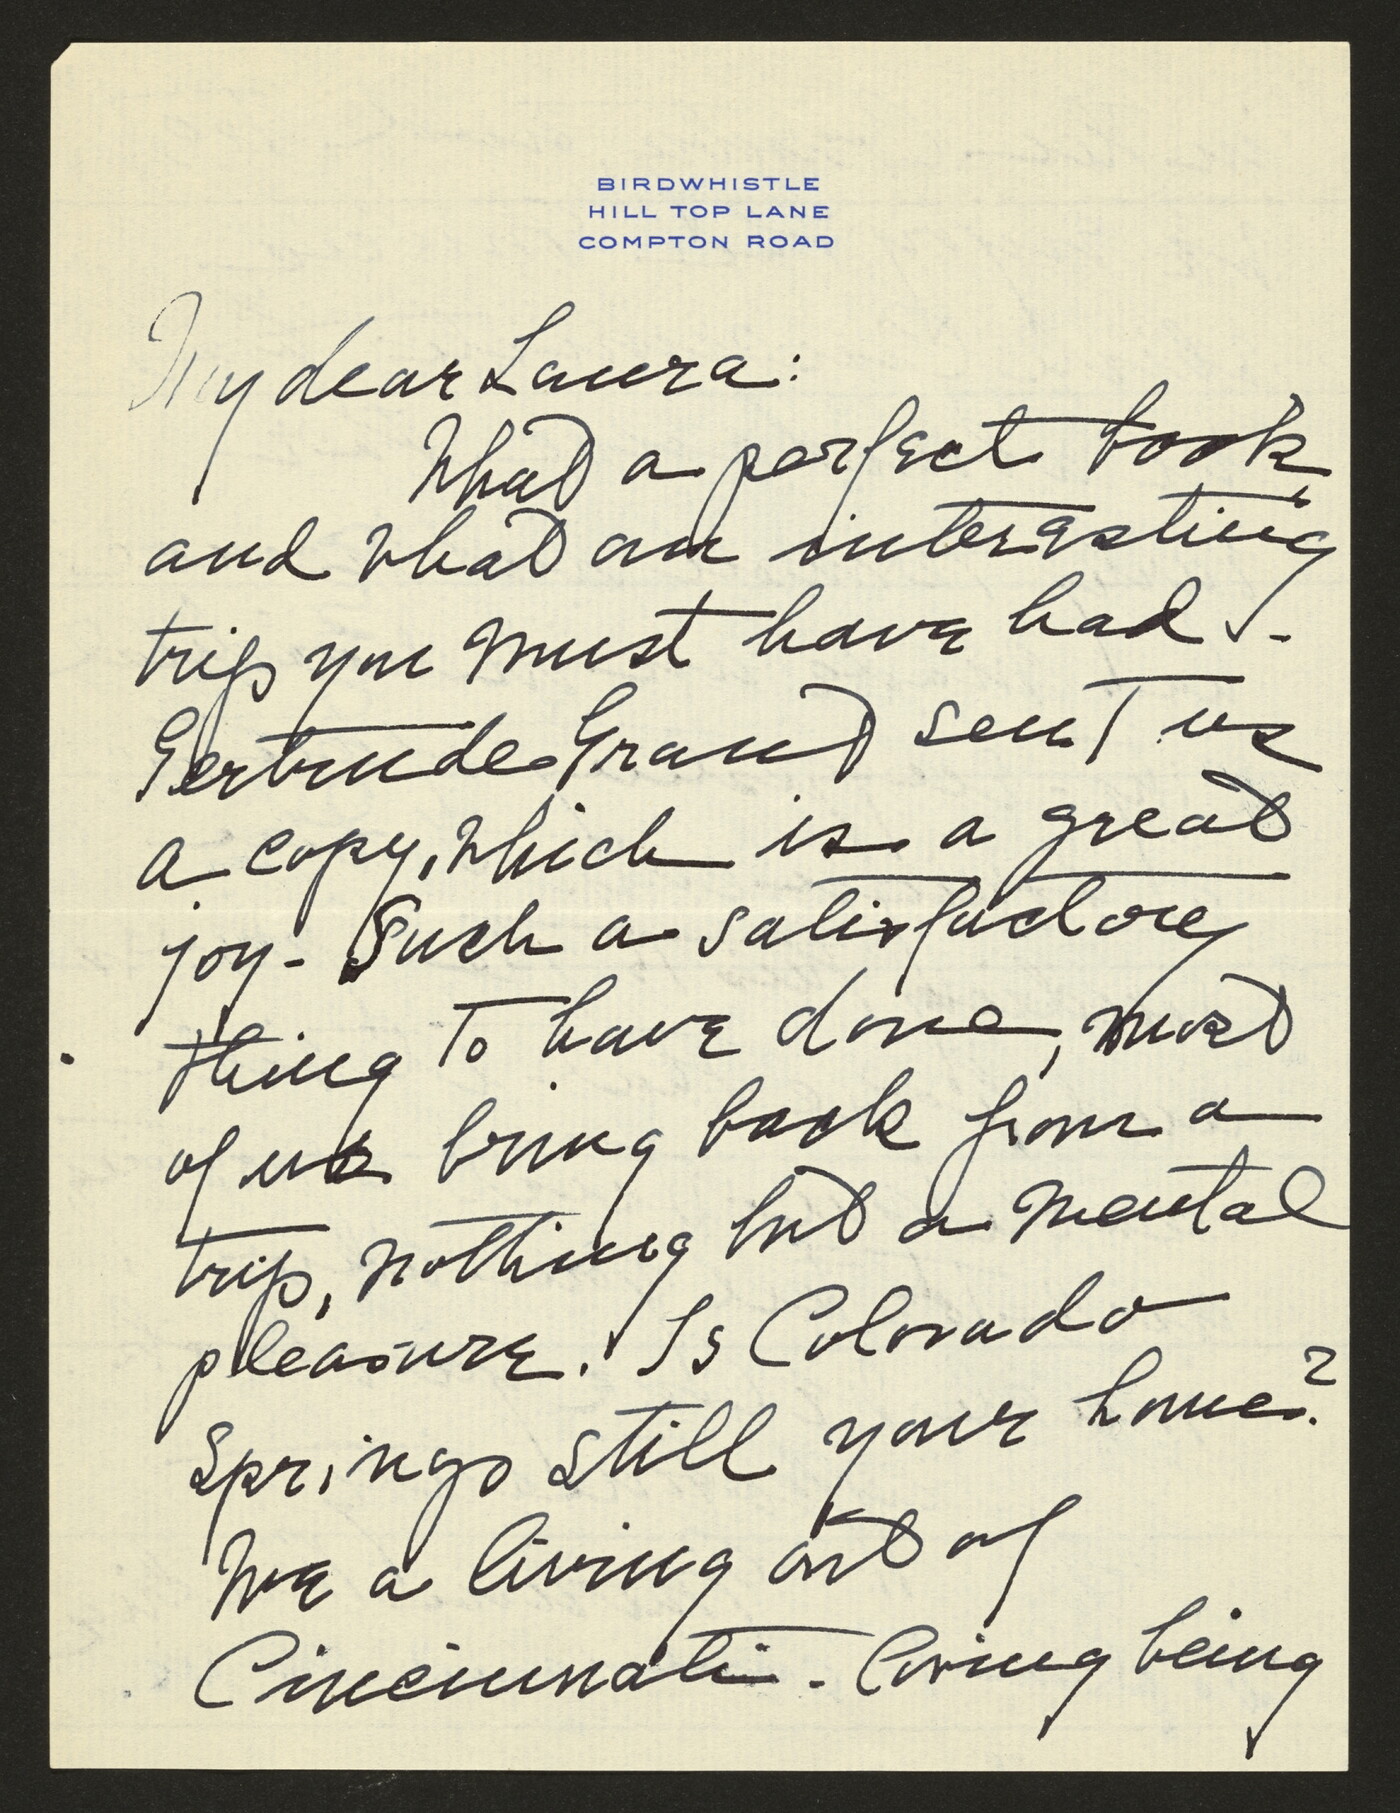 BIRDWHISTLE
HILL TOP LANE
COMPTON ROAD
My dear Laura:
What a perfect book,
and what an interesting
trip you must have had -
Gertrude Grand sent us
a copy, which is a great
joy - Such a satisfactory
thing to have done, most
of us bring back from a
trip, nothing but a mental
pleasure. Is Colorado
Springs still your home?
We a living out of
Cincinnati - loving being